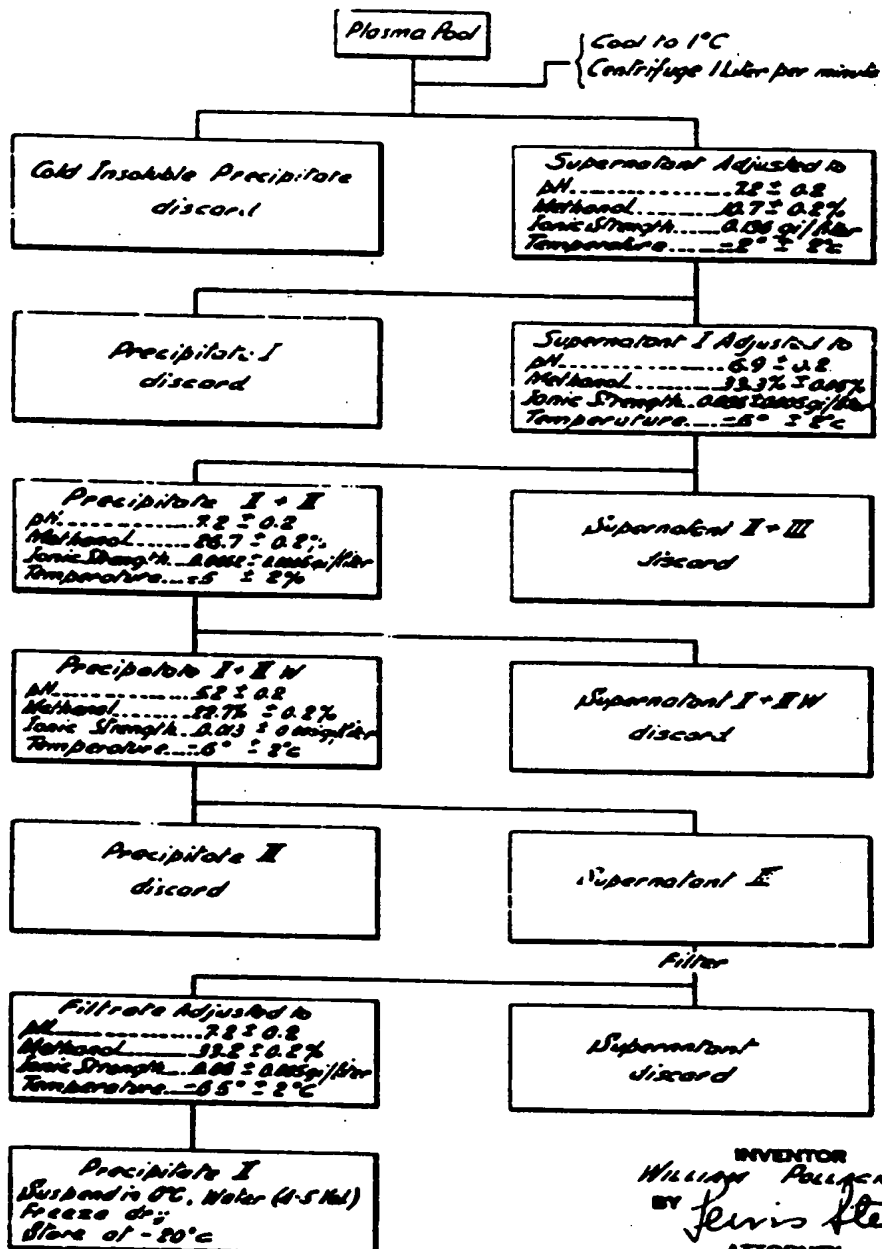 Plasma Pool
Cool to 1°C
Centrifuge 1 Liter per minute
Cold Insoluble Precipitate
discard
Supernatant Adjusted to
pH 7.2 ± 0.2
Methanol 10.7 ± 0.2%
Ionic Strength 0.136 gi/liter
Temperature -2° ± 2°C
Precipitate I
discard
Supernatant I Adjusted to
pH 6.9 ± 0.2
Methanol 33.3%
Ionic Strength
Temperature ± 2°C
Precipitate II + III
pH 7.2 ± 0.2
Methanol 26.7 ± 0.2%
Ionic Strength
Temperature -5 ± 2%
Supernatant II + III
discard
Precipatate II + III W
pH 5.2 ± 0.2
Methanol 22.7% ± 0.2%
Ionic Strength 0.013 ±
Temperature -6° ± 2°C
Supernatant II + III W
discard
Precipitate III
discard
Supernatant III
Filter
Filtrate Adjusted to
pH 7.2 ± 0.2
Methanol 33.2 ± 0.2%
Ionic Strength ± 0.005 gi/liter
Temperature -6.5° ± 2°C
Supernatant
discard
Precipitate II
Suspend in 0°C, Water
Freeze dry
Store at -20°C
INVENTOR
WILLIAM POLLACK
BY
ATTORNEY